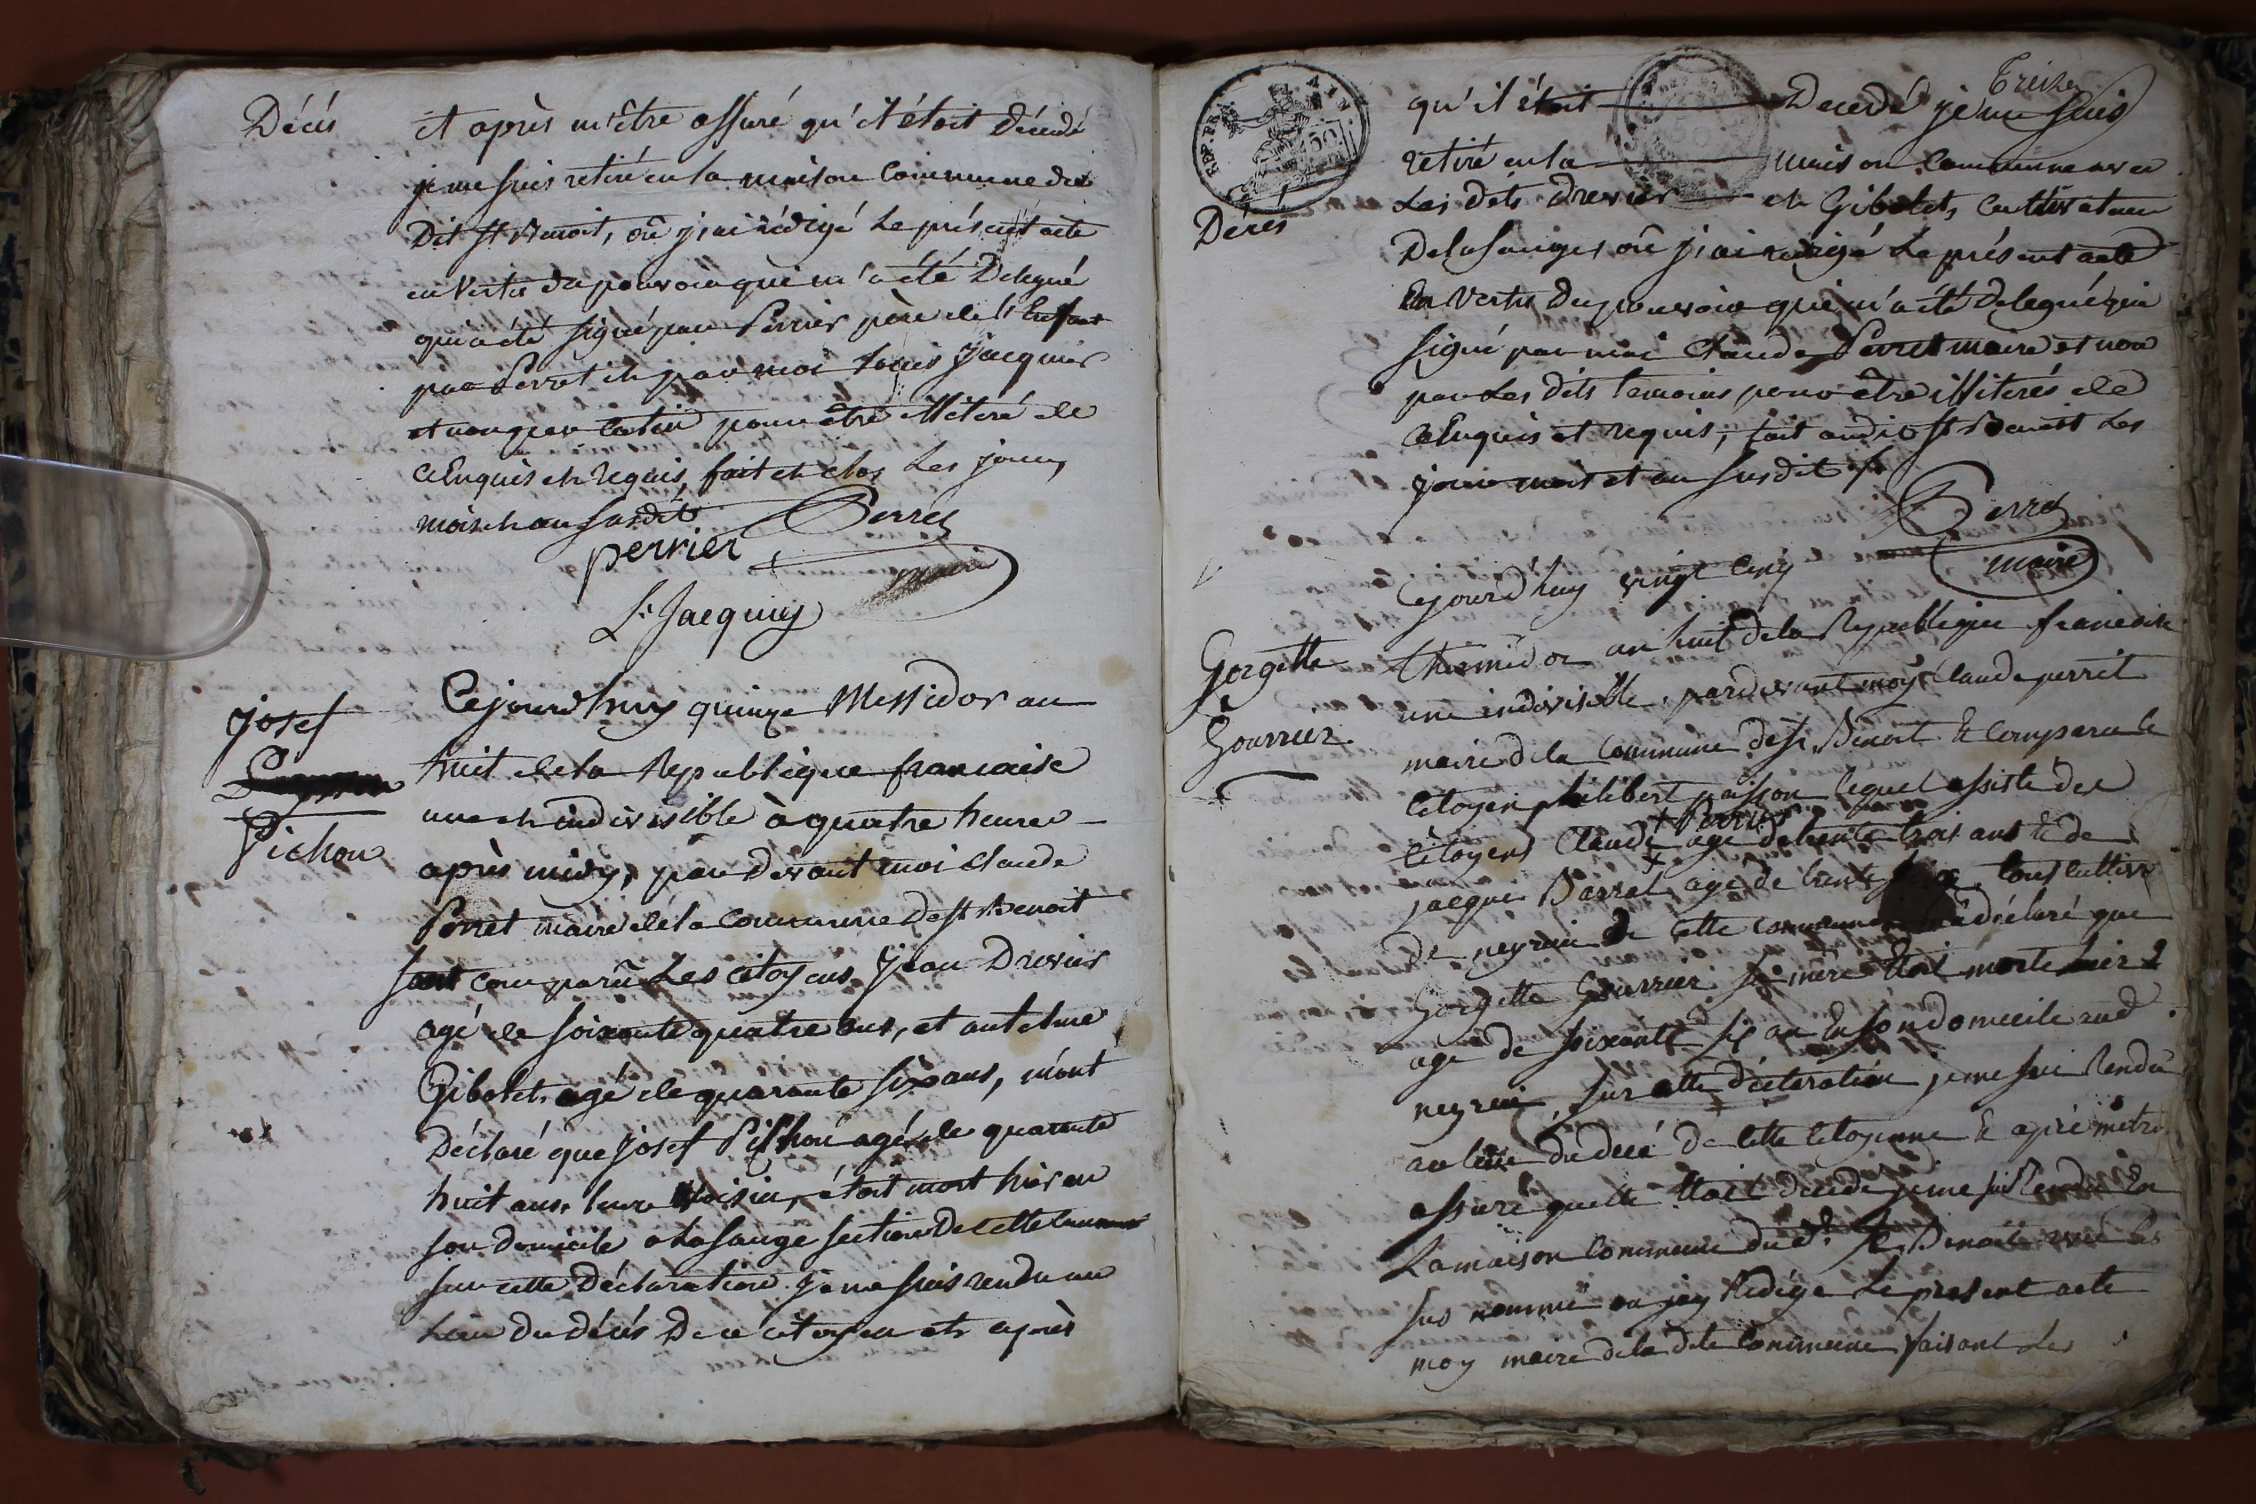 Décés
et après m'être assuré qu'il étoit décédé
je me suis retiré en la maison Commune du
Dit St Benoit, où j'ai rédigé le présent acte
en Vertu du pouvoir qui m'a été Delegué
qui a été signé par Perrier père de l'Enfant
par Perret et par moi Louis Jacquier
et non par Catin pour être illiteré de
ce Enquis et Requis, fait et clos les jour,
mois et an susdit
perrier
Perret
maire
Ls Jacquier
josef
Pichon
Cejourd'huy quinze Messidor an
huit de la République francaise
une et indivisible à quatre heures
après midy, par Devant moi Claude
Perret maire de la Commune De St Benoit
sont comparû Les citoyens Jean Drevier
agé de soixante quatre ans, et antelme
Gibolet agé de quarante six ans, m'ont
Déclaré que Josef Pichon agé de quarante
huit ans, leur voisin, étoit mort hier en
son domicile a La Sauge section De cette Commune
sur cette Déclaration je me suis rendu au
Lieu Du décés De ce citoyen et après
Treize
REP. FRA.
50
Décés
qu'il étoit Decedé je me suis
retiré en la maison Commune avec
Les dits Drevier et Gibolet, Cultivateur
De la Sauge, où j'ai rédigé Le présent acte
En Vertu du pouvoir qui m'a été Delegué qui
signé par moi Claude Perret maire et non
par Les dits temoins pour être illiterés de
ce Enquis et Requis, fait audit St Benoit Les
jour mois et an susdit
Perret
maire
Gorgette
Gourrier
Cejourd'huy vingt cinq
thermidor an huit de la Republique francaise
une indivisible, pardevant moy Claude perret
maire de la Commune de St Benoit Et Comparu le
Citoyen philibert poisson lequel assisté des
+ Perrier
Citoyens Claude + agé de trente trois ans Et de
jacque Barral agé de trente tous cultiv
de neyrieu de cette commune a déclaré que
Gorgette Gourrier sa mère Etoit morte hier
age de soixante six an En son domicile aud
neyrieu, sur cette déclaration je me suis Rendu
au lieu du décé de cette Citoyenne Et apré mètre
assuré quelle Etoit décédé je me suis Rendu En
La maison Commune dud. St Benoit avec les
sus nommé ou jay Rédigé Le present acte
moy maire de la dite Commune faisant Les